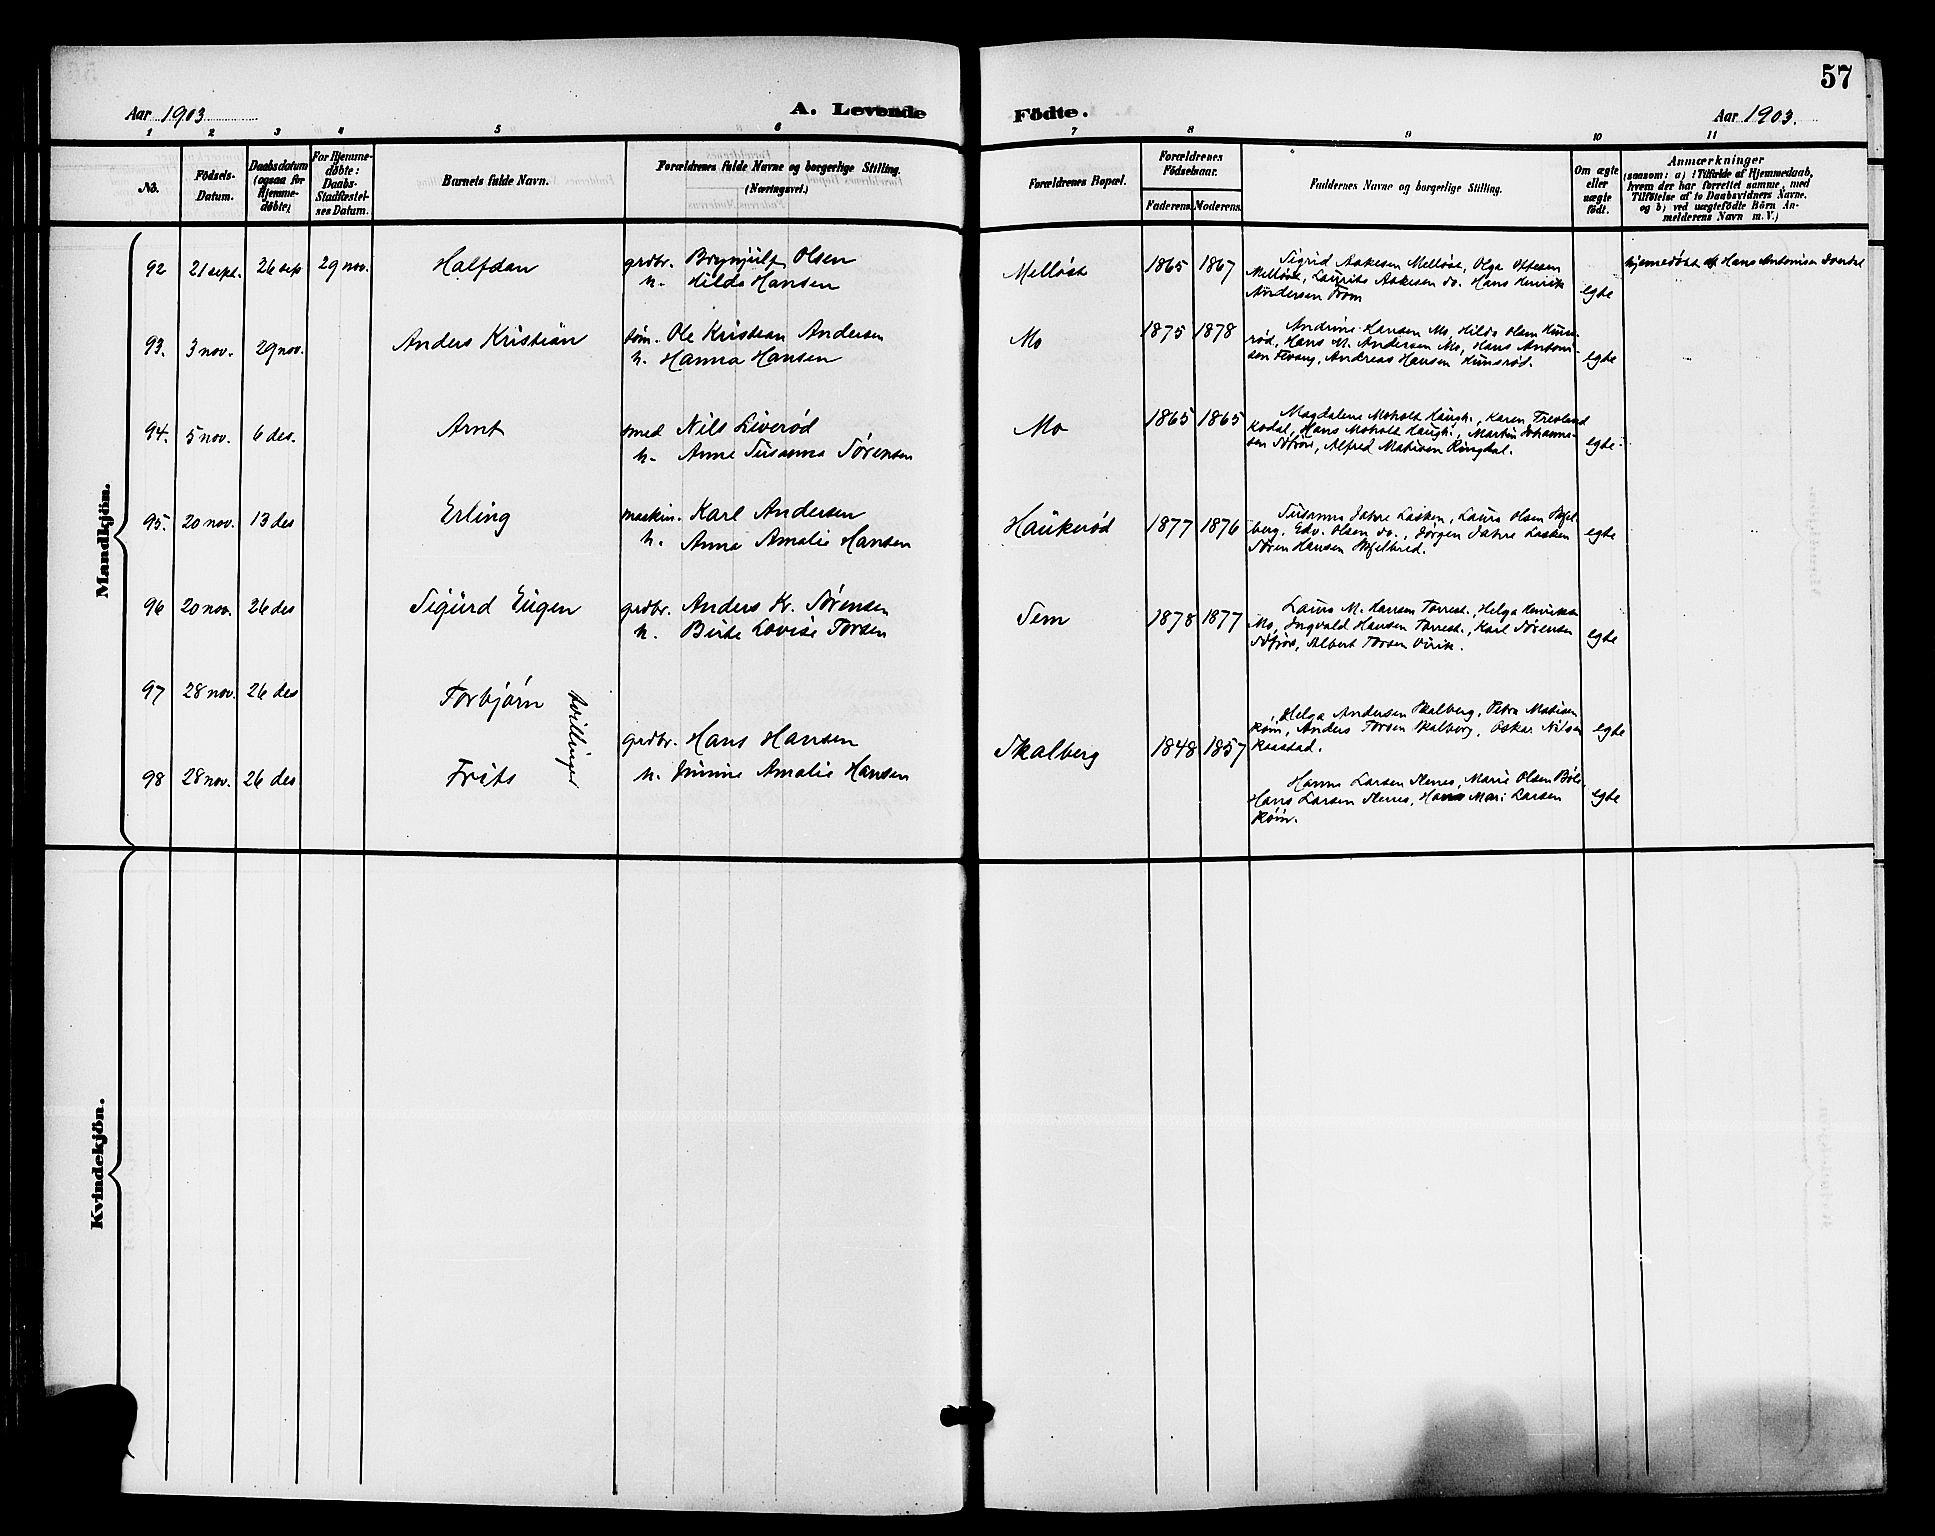 57
Aar 1903 A. Levende Födte. Aar 1903.
1 2 3 4 5 6 7 8 9 10 11
No.
Födsels-
Datum.
Daabsdatum
(ogsaa for
Hjemme-
døbte)
For Hjemme-
døbte:
Daabs-
Stadfæstel-
ses Datum.
Barnets fulde Navn.
Forældrenes fulde Navne og borgerlige Stilling.
(Næringsvei.)
Forældrenes Bopæl.
Forældrenes
Födselsaar.
Faderens. Moderens.
Faddernes Navne og borgerlige Stilling.
Om ægte
eller
uægte
født.
Anmærkninger
(saasom: a) i Tilfælde af Hjemmedaab,
hvem der har forrettet samme, med
Tilföielse af to Daabsvidners Navne,
og b) ved uægtefödte Börn An-
melderens Navn m. V.)
Mandkjön.
92 21 sept. 26 sep 29 nov. Halfdan grdbr. Brynjulf Olsen
h. Hilda Hansen
Melløst 1865 1867
Sigrid Aakesen Melløst, Olga Ottesen
Melløst, Laurits Aakesen do. Hans Henrik
Andersen From
egte
hjemmedøbt af Hans Antonisen
93. 3 nov. 29 nov. Anders Kristian tøm. Ole Kristian Andersen
h. Hanna Hansen
Mo 1875 1878
Andrine Hansen Mo, Hilda Olsen Huns-
rød, Hans M. Andersen Mo, Hans Anton-
sen, Andreas Hansen Hunsrød.
egte
94. 5 nov. 6 des. Arnt smed Nils Liverød
h. Anne Susanna Sørensen
Mo 1865 1865
Magdalene Moholt Haugh., Karen Trevland
Kodal, Hans Moholt Haugh., Martin Johanne-
sen, Alfred Matisen Ringdal.
egte
95. 20 nov. 13 des Erling maskin. Karl Andersen
h. Anna Amalie Hansen
Haukerød 1877 1876
Susanna Jahre Lasken, Laura Olsen Skjel-
berg, Edv. Olsen do., Jørgen Jahre Lasken
Søren Hansen Skjelbred.
egte
96 20 nov. 26 des Sigurd Eugen grdbr. Anders Kr. Sørensen
h. Birte Lovise Torsen
Sem 1878 1877
Laura M. Hansen Torrest., Helga Henriksen
Mo, Ingvald Hansen Torrest., Karl Sørensen
Albert Torsen Virik.
egte
97 28 nov. 26 des Torbjørn
tvillinger
grdbr. Hans Hansen
h. Amalie Hansen
Skalberg 1848 1857
Helga Andersen Skalberg, Petra Matisen
Røm, Anders Torsen Skalberg, Oskar Nilsen
Raastad.
egte
98 28 nov. 26 des Frits
Hanna Larsen Nerres, Marie Olsen
Hans Larsen Nerres, Hans Mari Larsen
Røm.
egte
Kvindekjön.